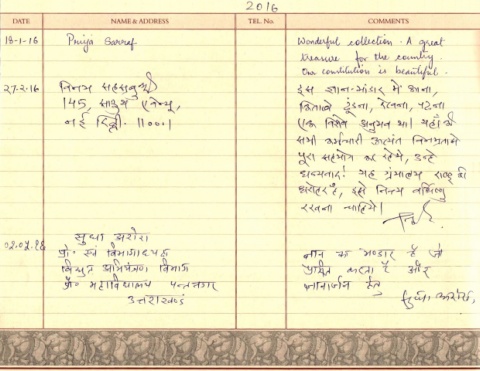 2016
DATE NAME & ADDRESS TEL. No. COMMENTS
18-1-16 Priya Sarraf
Wonderful collection. A great
treasure for the country.
The constitution is beautiful.
27-2-16
145, साउथ एवेन्यू,
नई दिल्ली. 110001
इस ज्ञान-भंडार में आना,
किताबें ढूंढना, देखना, पढ़ना
एक विशेष अनुभव था। यहाँ के
सभी कर्मचारी अत्यंत विनम्रता से
पूरा सहयोग कर रहे थे, उन्हें
धन्यवाद! यह ग्रंथालय राष्ट्र की
धरोहर है, इसे नित्य वर्धिष्णु
रखना चाहिये।
सुधा अरोरा
प्रो. एवं विभागाध्यक्ष
विद्युत अभियंत्रण विभाग
प्रौ. महाविद्यालय पन्तनगर
उत्तराखंड
ज्ञान का भण्डार है जो
करता है और
ज्ञानार्जन हेतु
सुधा अरोरा